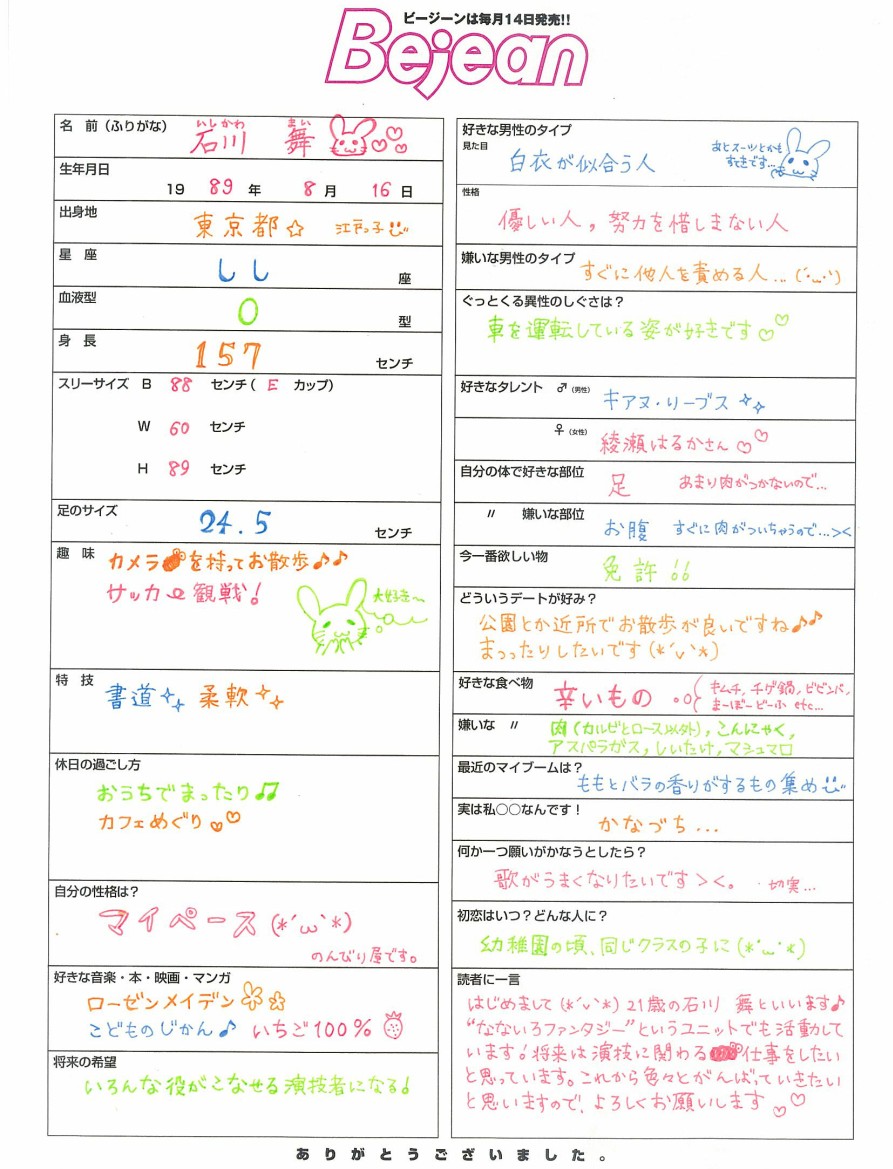 ビージーンは毎月14日発売!!
Bejean
名 前（ふりがな）
いしかわ まい
石川 舞
生年月日
19 89 年 8 月 16 日
出身地
東京都☆ 江戸っ子
星 座
しし 座
血液型
O 型
身 長
157 センチ
スリーサイズ B 88 センチ( E カップ)
W 60 センチ
H 89 センチ
足のサイズ
24.5 センチ
趣 味
カメラを持ってお散歩♪♪
サッカー観戦!
大好き〜
特 技
書道 柔軟
休日の過ごし方
おうちでまったり♫
カフェめぐり♡♡
自分の性格は？
マイペース(*´ω`*)
のんびり屋です。
好きな音楽・本・映画・マンガ
ローゼンメイデン
こどものじかん♪ いちご100%
将来の希望
いろんな役がこなせる演技者になる!
好きな男性のタイプ
見た目
白衣が似合う人
あとスーツとかも
すてきです…
性格
優しい人，努力を惜しまない人
嫌いな男性のタイプ
すぐに他人を責める人…(´・ω・`)
ぐっとくる異性のしぐさは？
車を運転している姿が好きです♡♡
好きなタレント ♂（男性）
キアヌ・リーブス
♀（女性）
綾瀬はるかさん♡♡
自分の体で好きな部位
足 あまり肉がつかないので…
〃 嫌いな部位
お腹 すぐに肉がついちゃうので…><
今一番欲しい物
免許!!
どういうデートが好み？
公園とか近所でお散歩が良いですね♪♪
まったりしたいです(*´∨`*)
好きな食べ物
辛いもの
キムチ，チゲ鍋，ビビンバ，
まーぼーどーふ etc…
嫌いな 〃
肉(カルビとロース以外)，こんにゃく，
アスパラガス，しいたけ，マシュマロ
最近のマイブームは？
ももとバラの香りがするもの集め
実は私○○なんです！
かなづち…
何か一つ願いがかなうとしたら？
歌がうまくなりたいです＞＜。 ・切実…
初恋はいつ？どんな人に？
幼稚園の頃、同じクラスの子に(*´ω`*)
読者に一言
はじめまして(*´∨`*)21歳の石川 舞といいます♪
"なないろファンタジー"というユニットでも活動して
います!将来は演技に関わる仕事をしたい
と思っています。これから色々とがんばっていきたい
と思いますので、よろしくお願いします♡♡
ありがとうございました。